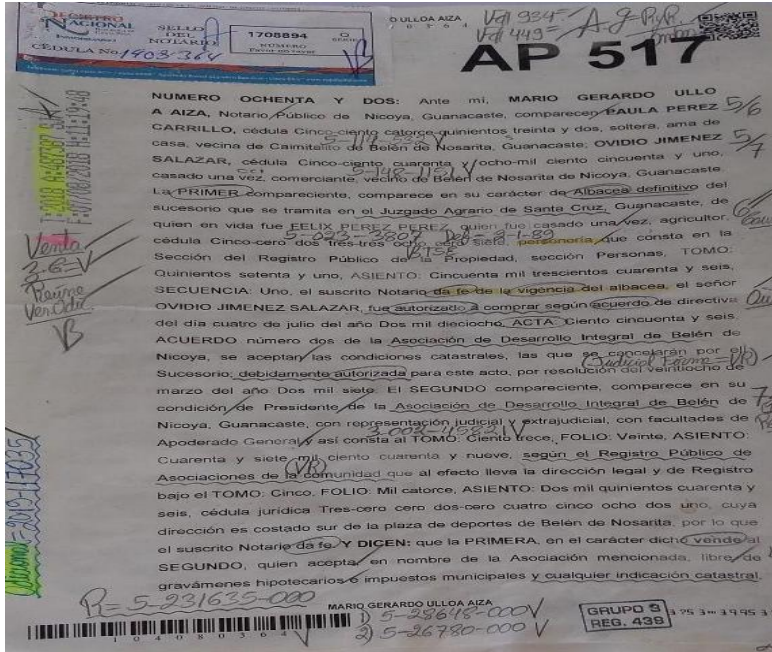 REGISTRO
NACIONAL
SELLO
DEL
NOTARIO
1708894
NÚMERO
SERIE
CÉDULA No. 1903-364
O ULLOA AIZA
0 3 6 4
AP 517
NUMERO OCHENTA Y DOS: Ante mí, MARIO GERARDO ULLO
A AIZA, Notario Público de Nicoya, Guanacaste, comparecen PAULA PEREZ 5/6
CARRILLO, cédula Cinco-ciento catorce-quinientos treinta y dos, soltera, ama de
5-114-532
casa, vecina de Caimitalito de Belén de Nosarita, Guanacaste; OVIDIO JIMENEZ 5/7
SALAZAR, cédula Cinco-ciento cuarenta y ocho-mil ciento cincuenta y uno,
5-148-1151
casado una vez, comerciante, vecino de Belén de Nosarita de Nicoya, Guanacaste.
La PRIMER compareciente, comparece en su carácter de Albacea definitivo del
sucesorio que se tramita en el Juzgado Agrario de Santa Cruz, Guanacaste, de
quien en vida fue FELIX PEREZ PEREZ, quien fue casado una vez, agricultor,
5-023-3807
cédula Cinco-cero dos tres-tres ocho cero siete, personería que consta en la
Sección del Registro Público de la Propiedad, sección Personas, TOMO:
Quinientos setenta y uno, ASIENTO: Cincuenta mil trescientos cuarenta y seis,
SECUENCIA: Uno, el suscrito Notario da fe de la vigencia del albacea, el señor
OVIDIO JIMENEZ SALAZAR, fue autorizado a comprar según acuerdo de directiva
del día cuatro de julio del año Dos mil dieciocho, ACTA Ciento cincuenta y seis,
ACUERDO número dos de la Asociación de Desarrollo Integral de Belén de
Nicoya, se aceptan las condiciones catastrales, las que se cancelarán por el
Sucesorio; debidamente autorizada para este acto, por resolución del veintiocho de
marzo del año Dos mil siete. El SEGUNDO compareciente, comparece en su
condición de Presidente de la Asociación de Desarrollo Integral de Belén de
Nicoya, Guanacaste, con representación judicial y extrajudicial, con facultades de
3-002-45821
Apoderado General y así consta al TOMO: Ciento trece, FOLIO: Veinte, ASIENTO:
Cuarenta y siete mil ciento cuarenta y nueve, según el Registro Público de
Asociaciones de la comunidad que al efecto lleva la dirección legal y de Registro
bajo el TOMO: Cinco, FOLIO: Mil catorce, ASIENTO: Dos mil quinientos cuarenta y
seis, cédula jurídica Tres-cero cero dos-cero cuatro cinco ocho dos uno, cuya
dirección es costado sur de la plaza de deportes de Belén de Nosarita, por lo que
el suscrito Notario da fe. Y DICEN: que la PRIMERA, en el carácter dicho vende al
SEGUNDO, quien acepta en nombre de la Asociación mencionada, libre de
gravámenes hipotecarios e impuestos municipales y cualquier indicación catastral,
R=5-231635-000
MARIO GERARDO ULLOA AIZA
1) 5-28648-000
2) 5-26780-000
1 0 4 0 8 0 3 6 4
GRUPO 3
REG. 439
Venta
VB